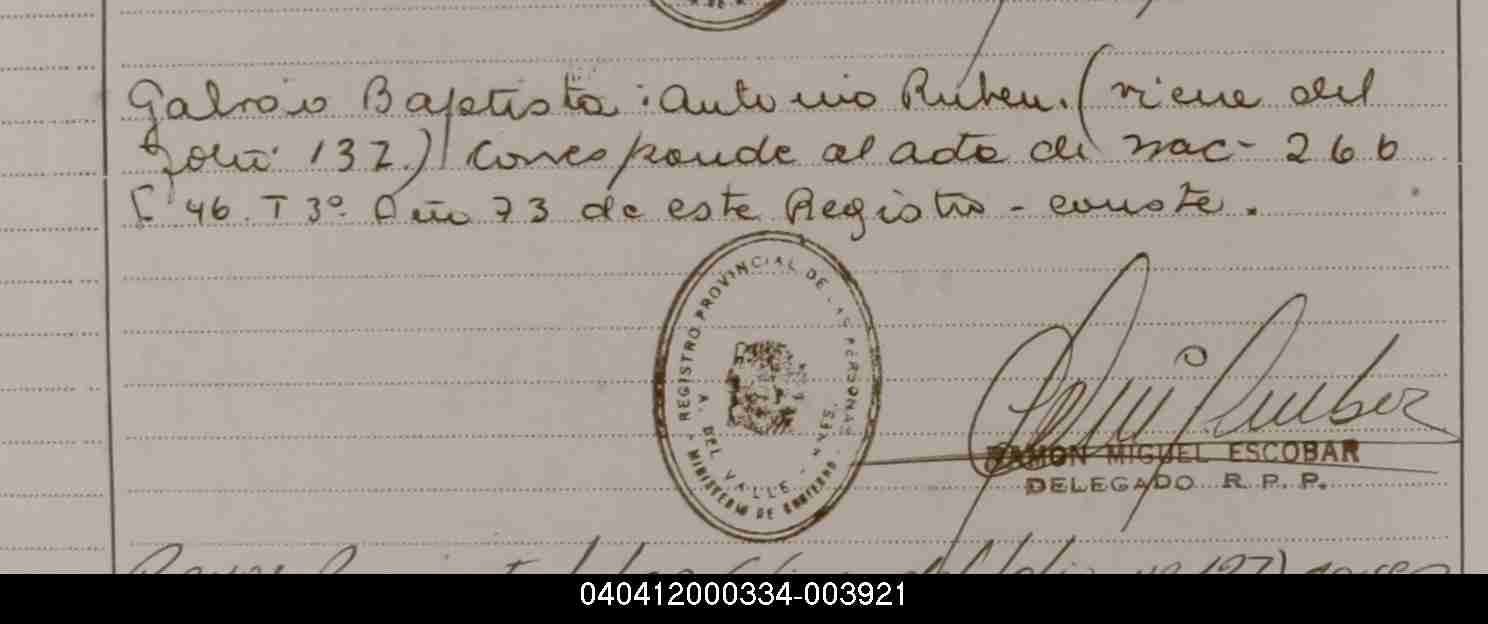 Galvao Baptista: Antonio Ruben. (viene del
folio 132.) Corresponde al acta de nac- 266
F 46. T 3º. Año 73 de este Registro - conste.
REGISTRO PROVINCIAL DE LAS PERSONAS
A. DEL VALLE - MNES.
MINISTERIO DE GOBIERNO
RAMON MIGUEL ESCOBAR
DELEGADO R. P. P.
040412000334-003921